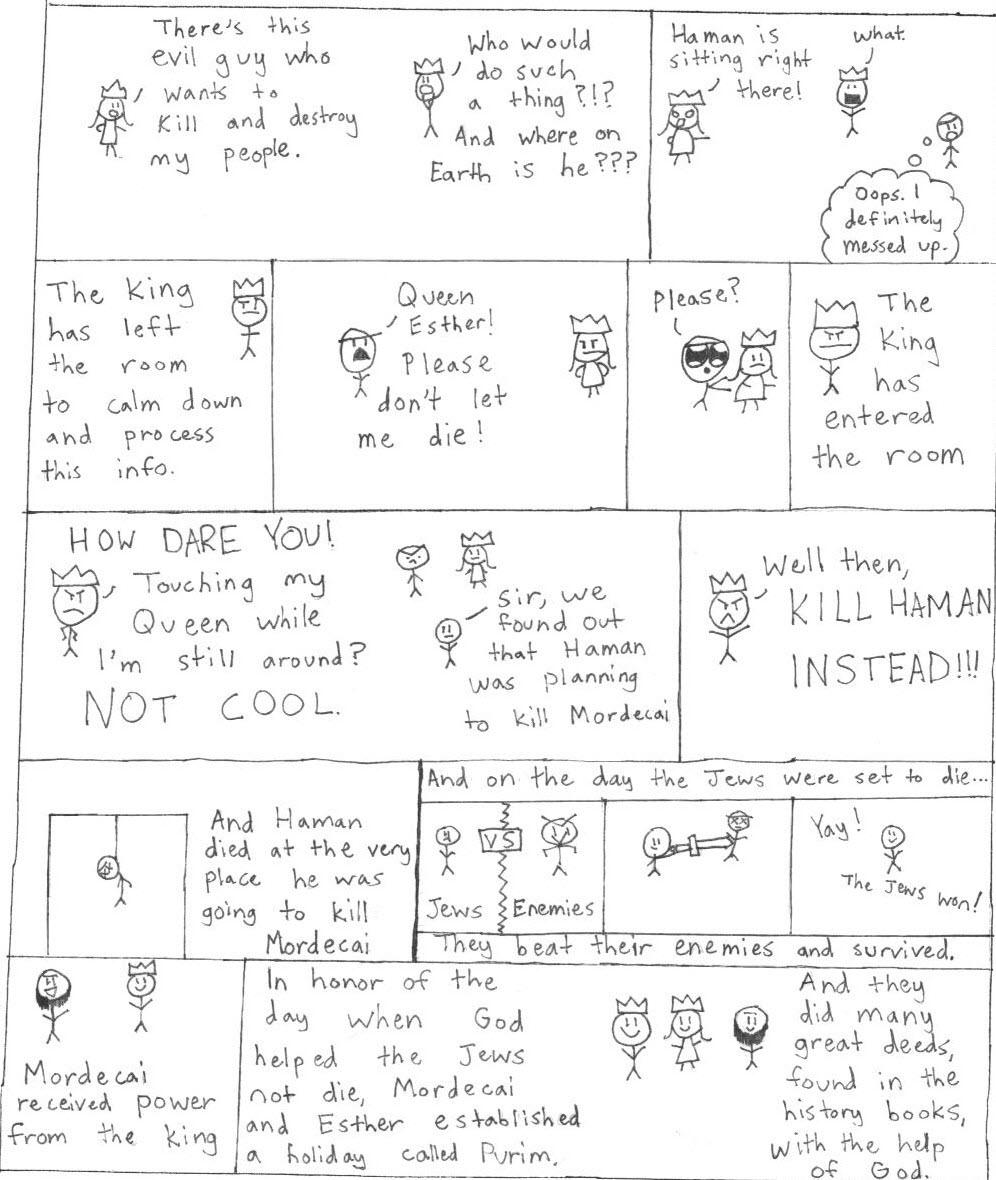 There's this
evil guy who
wants to
kill and destroy
my people.
Who would
do such
a thing?!?
And where on
Earth is he???
Haman is
sitting right
there!
what.
Oops. I
definitely
messed up.
The King
has left
the room
to calm down
and process
this info.
Queen
Esther!
Please
don't let
me die!
Please?
The
King
has
entered
the room
HOW DARE YOU!
Touching my
Queen while
I'm still around?
NOT COOL.
Sir, we
found out
that Haman
was planning
to kill Mordecai
Well then,
KILL HAMAN
INSTEAD!!!
And Haman
died at the very
place he was
going to kill
Mordecai
And on the day the Jews were set to die...
VS
Jews
Enemies
Yay!
The Jews won!
They beat their enemies and survived.
Mordecai
received power
from the king
In honor of the
day when God
helped the Jews
not die, Mordecai
and Esther established
a holiday called Purim.
And they
did many
great deeds,
found in the
history books,
with the help
of God.